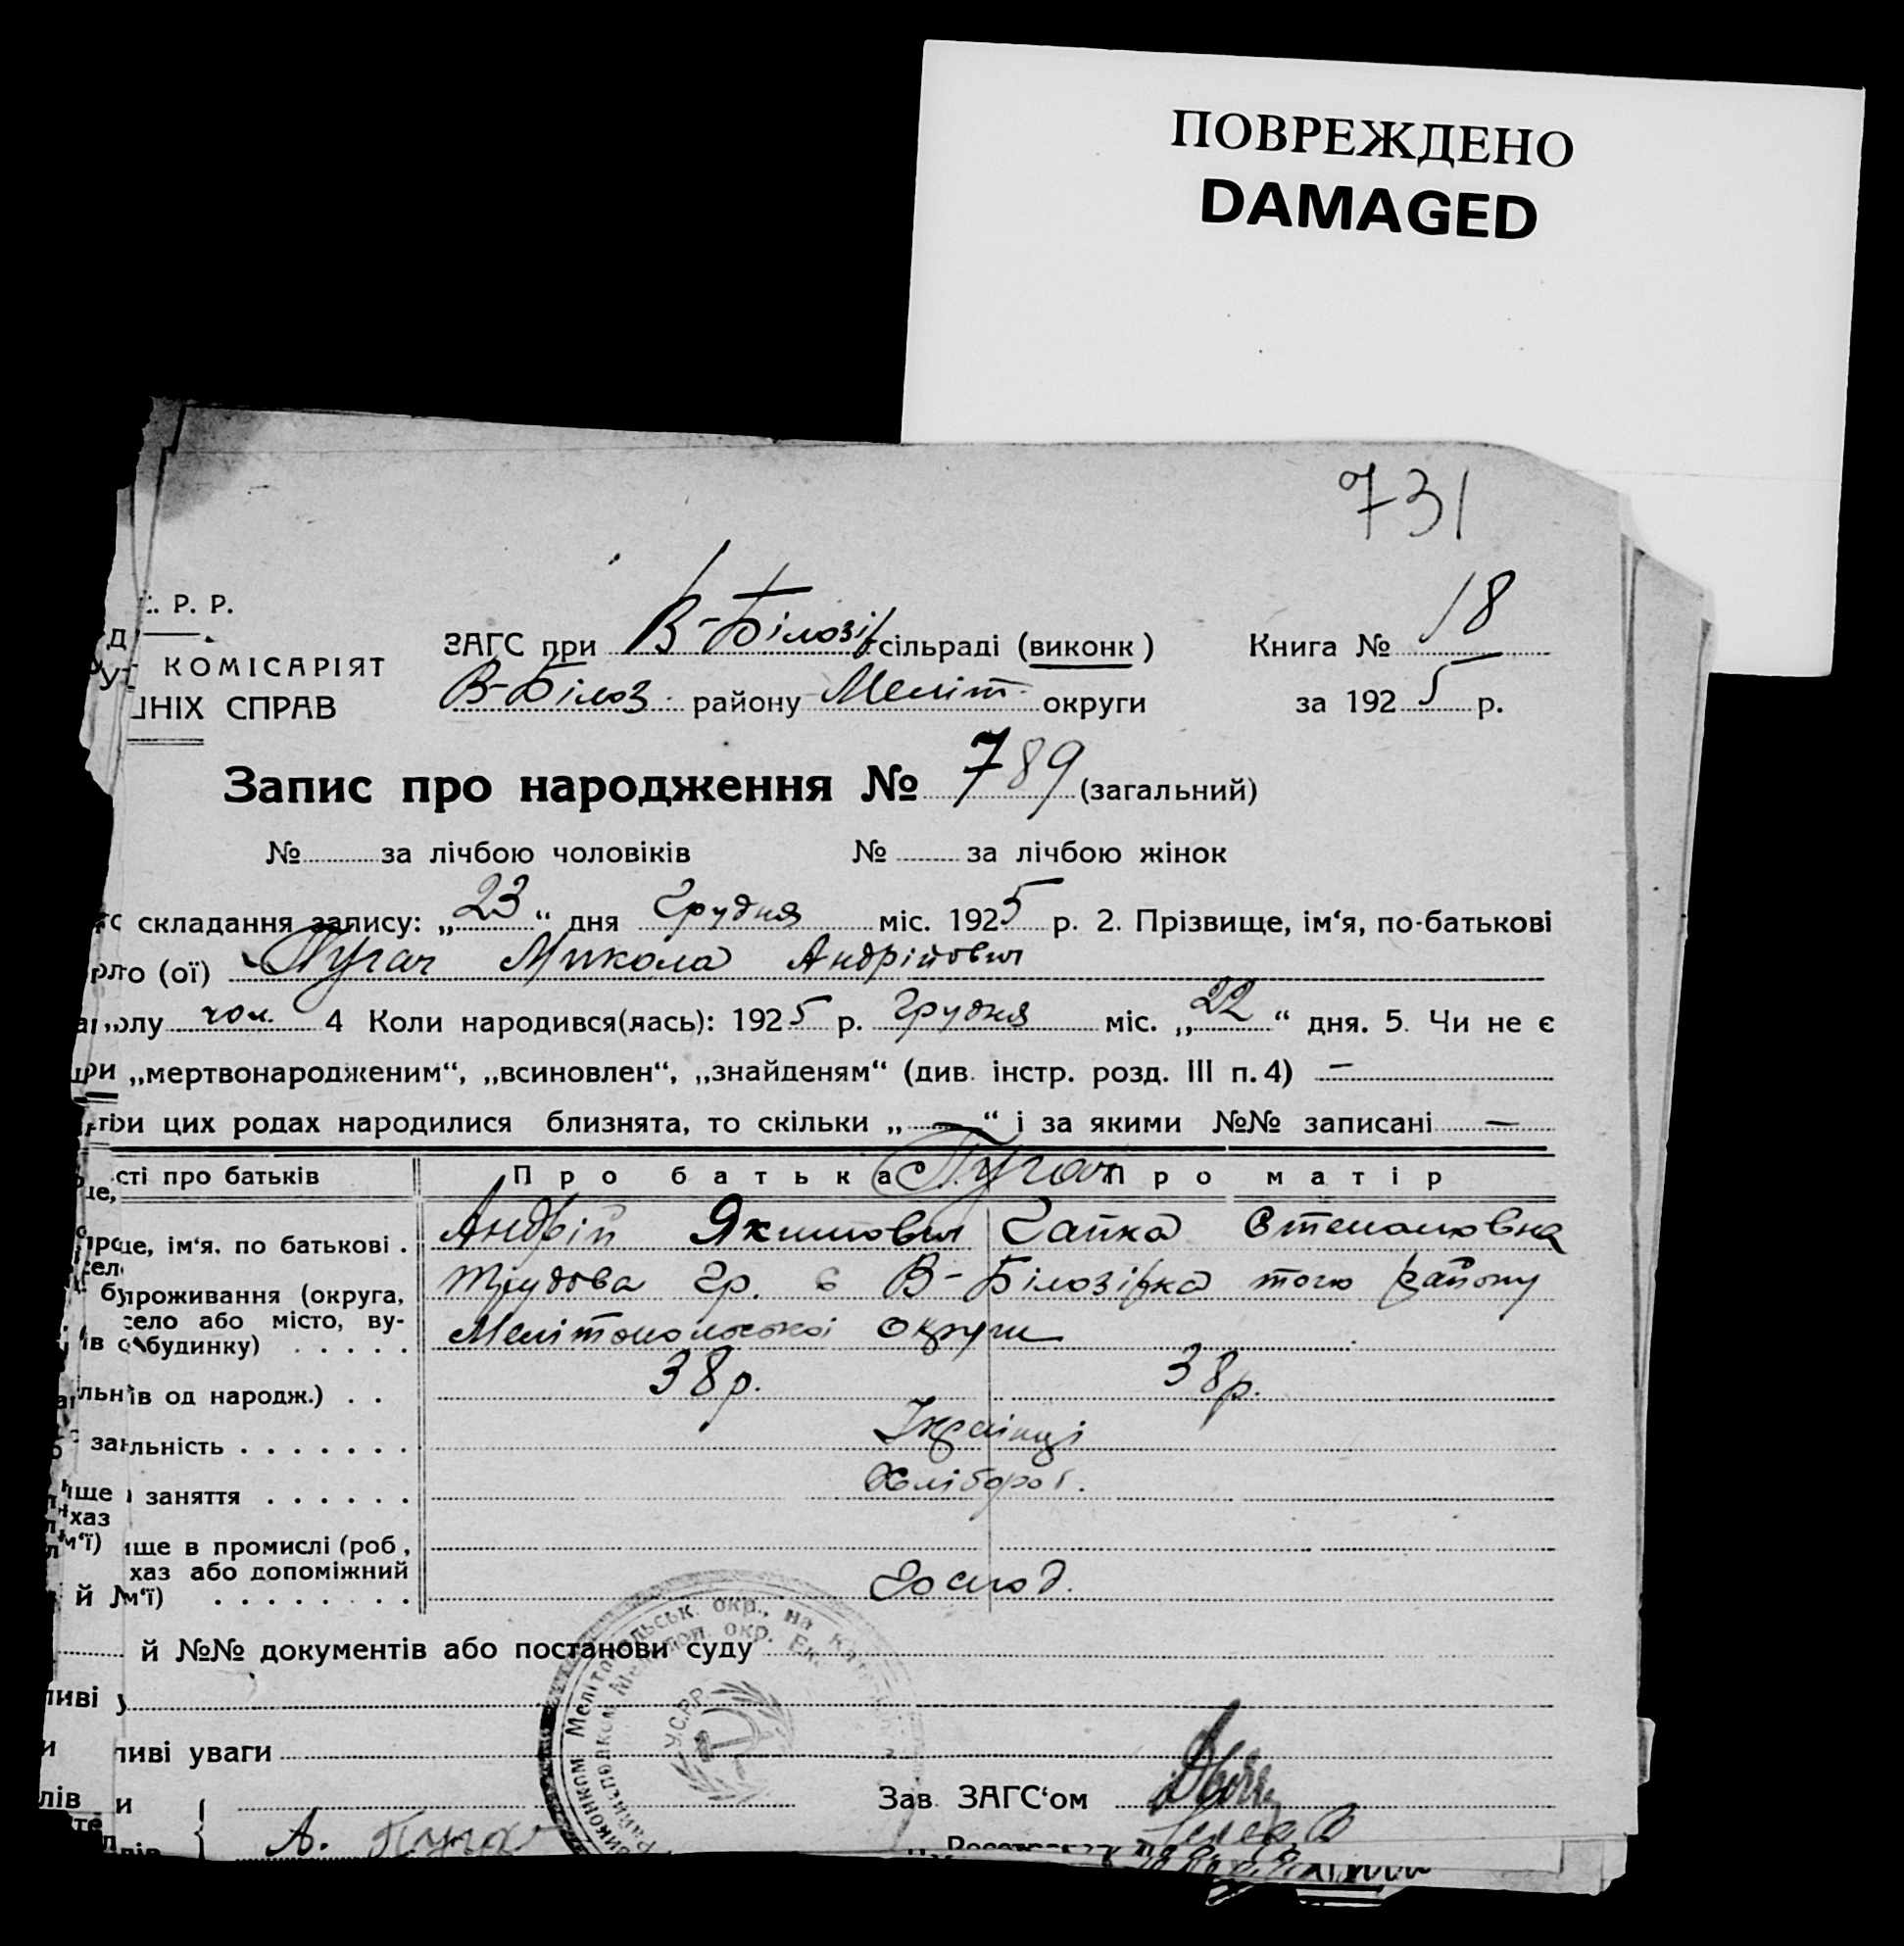 ПОВРЕЖДЕНО
DAMAGED
731
Р. Р.
КОМІСАРІЯТ
ЗАГС при В-Білозір сільраді (виконк) Книга № 18
СПРАВ В-Білоз. району Меліт. округи за 1925 р.
Запис про народження № 789 (загальний)
№ за лічбою чоловіків № за лічбою жінок
складання запису: „23“ дня Грудня міс. 1925 р. 2. Прізвище, ім‘я, по-батькові
(ої) Пугач Микола Андрійович
чол. 4 Коли народився(лась): 1925 р. Грудня міс. „22“ дня. 5. Чи не є
„мертвонародженим“, „всиновлен“, „знайденям“ (див. інстр. розд. III п. 4) —
цих родах народилися близнята, то скільки „—“ і за якими №№ записані —
сті про батьків Про батька Пугач Про матір
ім‘я, по батькові . Андрій Якимович Гапка Степановна
проживання (округа, Трудова гр. с В-Білозірка того району
село або місто, ву-
будинку) . . . . . Мелітопольської округи
ів од народж.) . . 38 р. 38 р.
льність . . . . . . . Українці
заняття . . . . . . Хлібороб.
ище в промислі (роб,
хаз або допоміжний
м‘ї) . . . . . . . . Господ.
й №№ документів або постанови суду
ливі уваги
У.С.Р.Р.
Зав. ЗАГС‘ом
А. Пугач